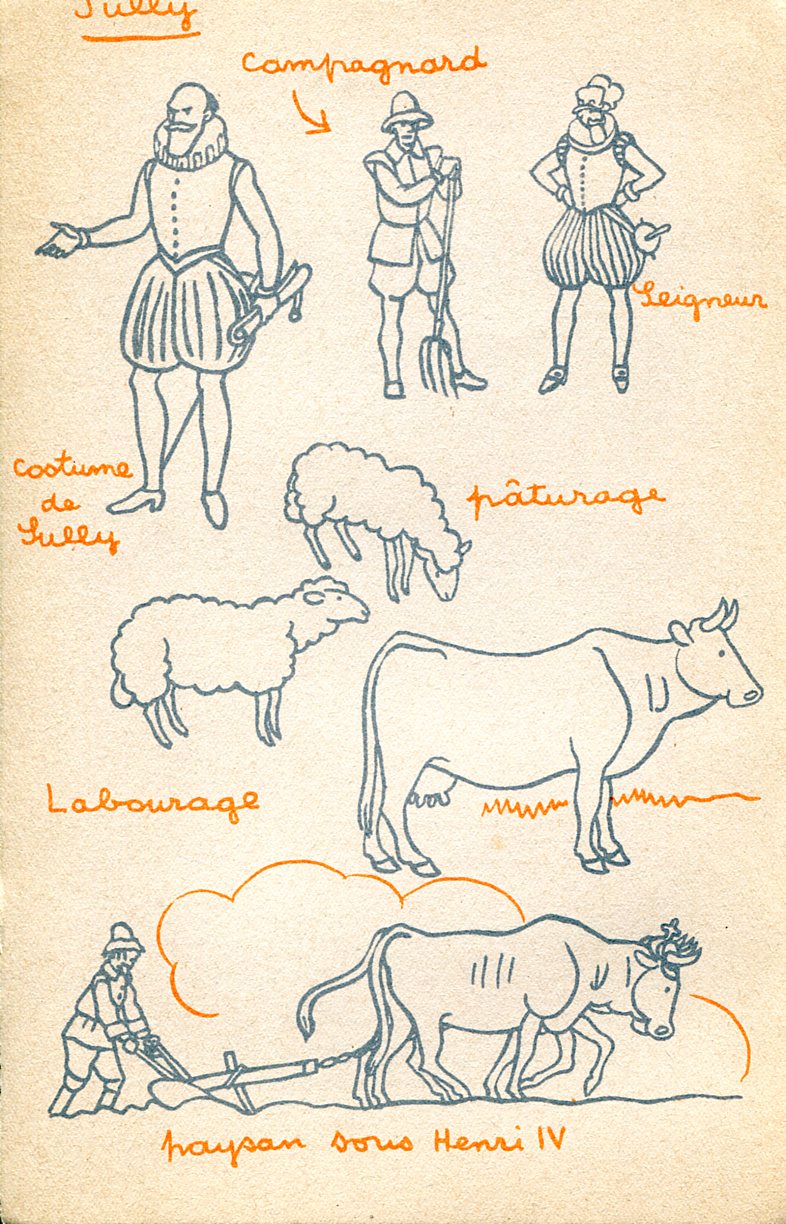 Sully
Campagnard
Seigneur
Costume
de
Sully
pâturage
Labourage
paysan sous Henri IV